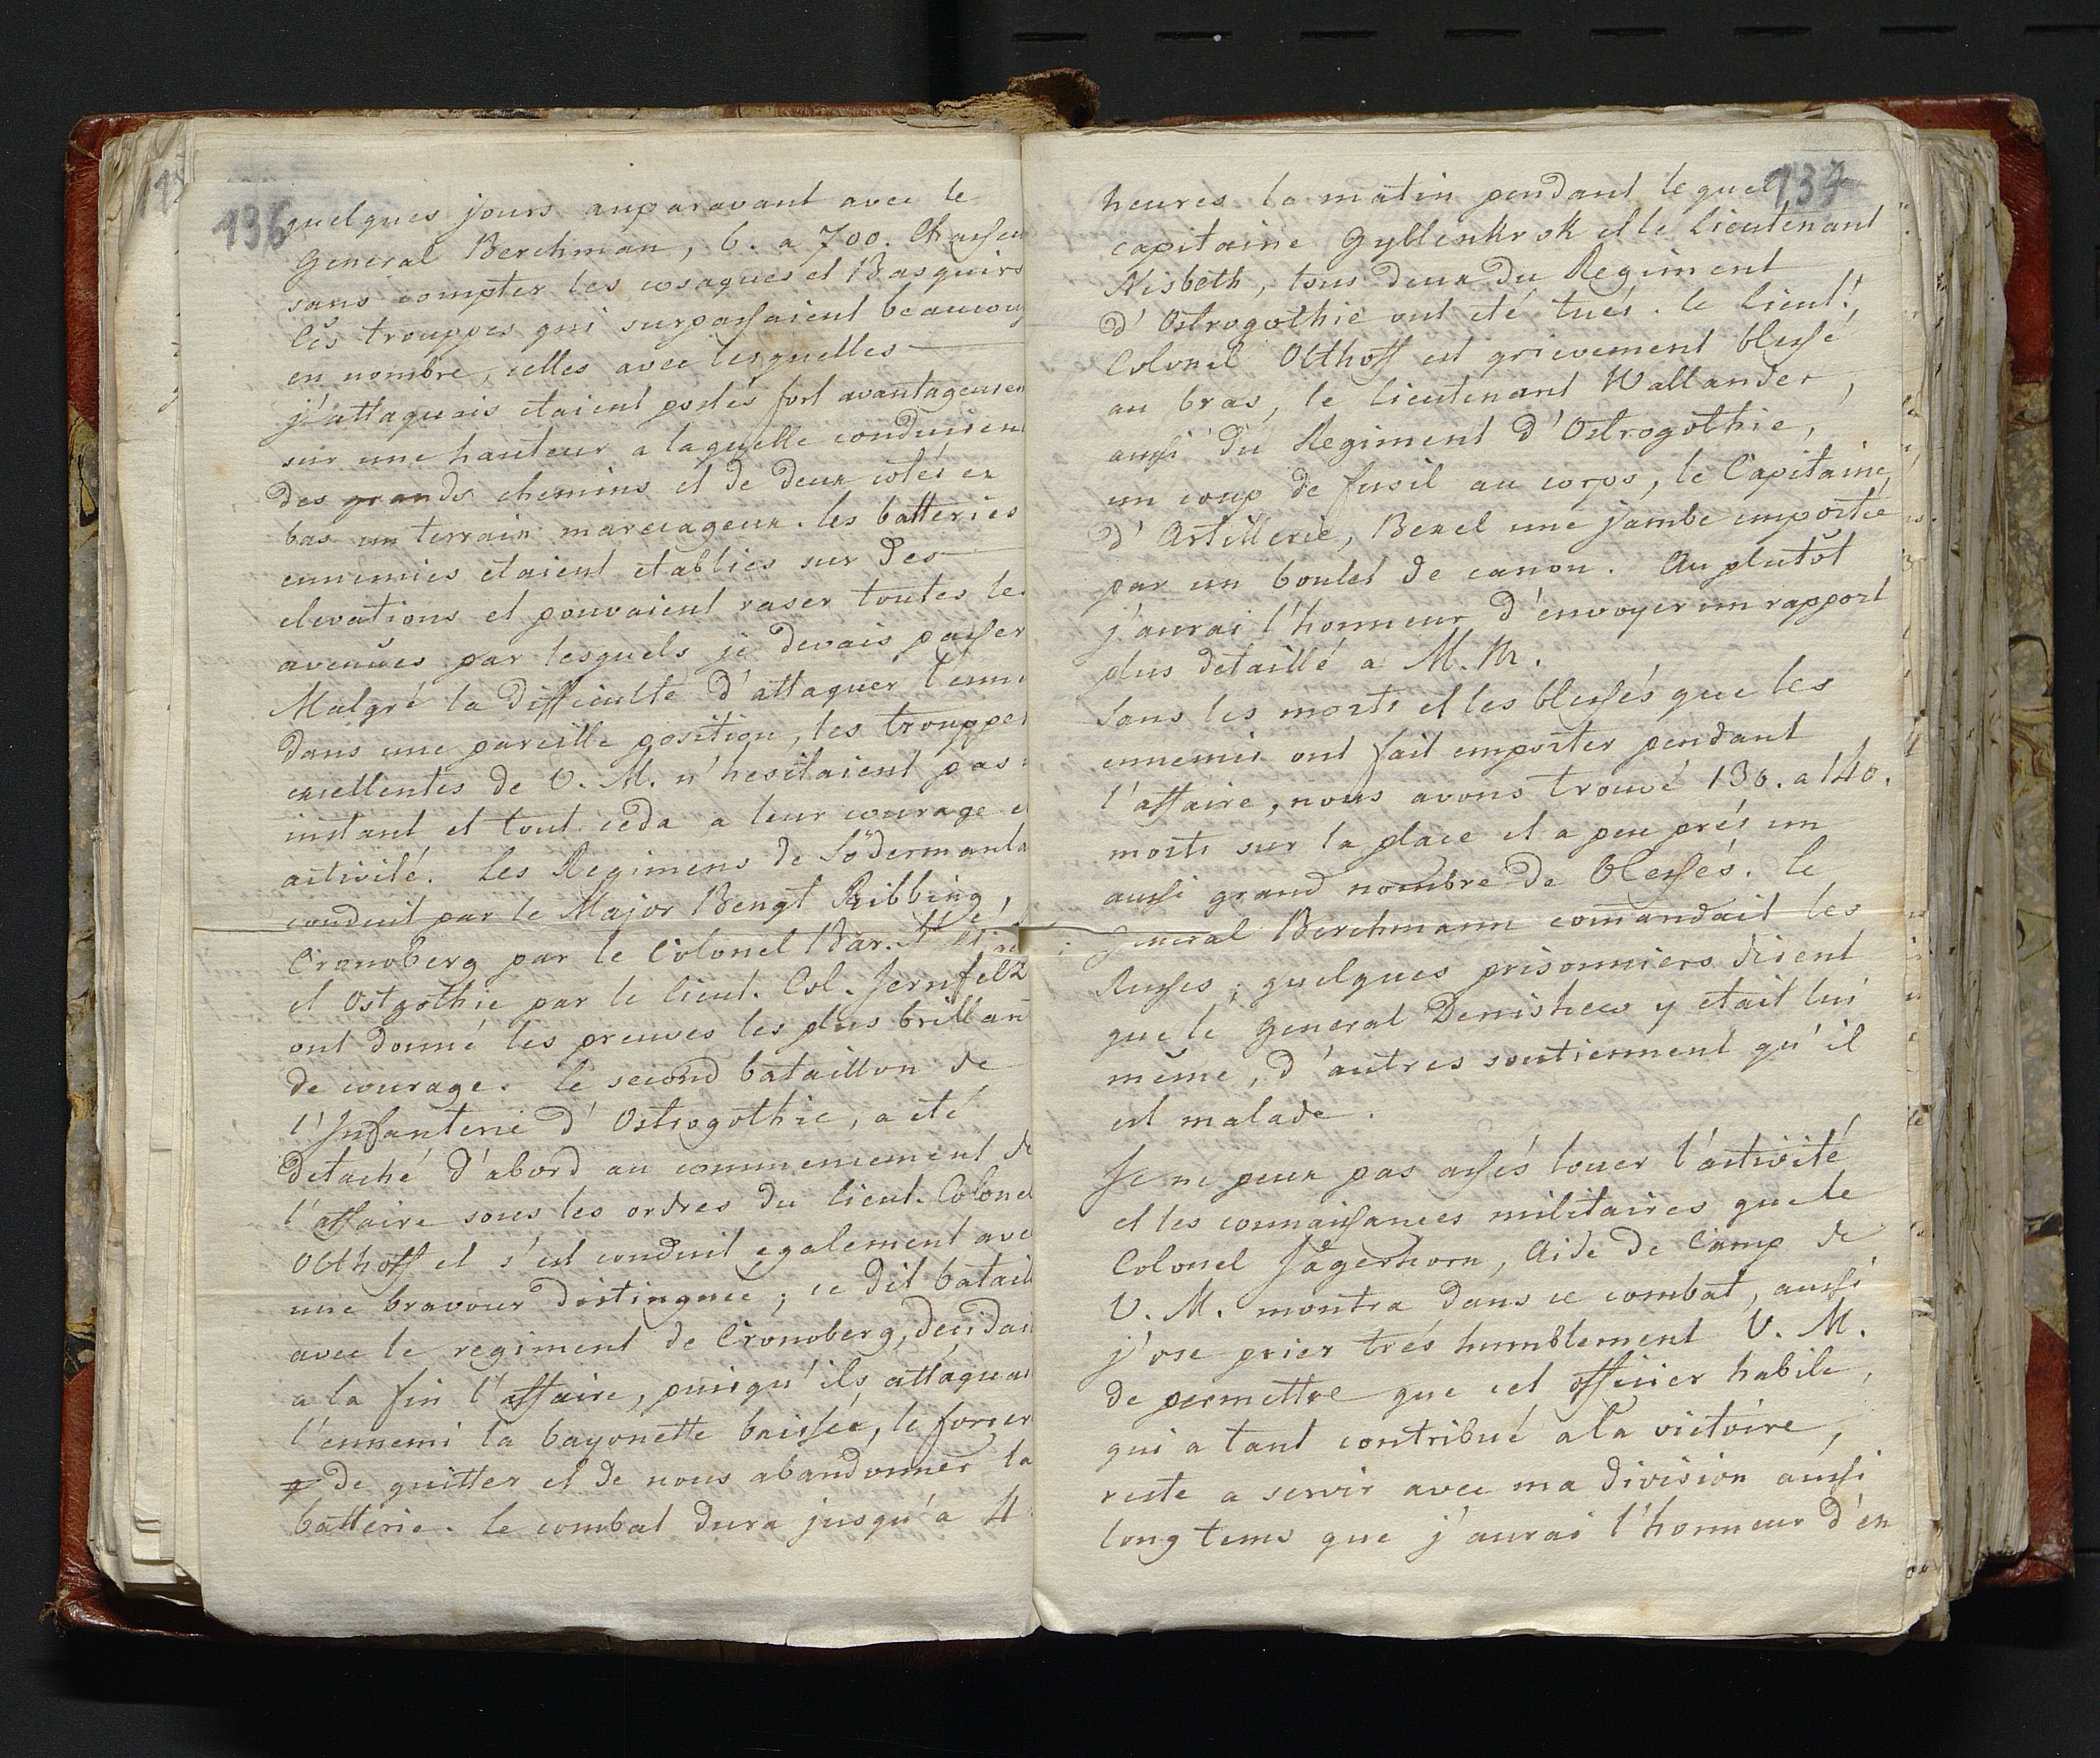 136
quelques jours auparavant avec le
General Berchman, 6. a 700. Chasseu
sans compter les cosaques et Basquirs
les trouppes qui surpassaient beaucoup
en nombre, celles avec lesquelles
j'attaquais etaient postés fort avantageusen
sur une hauteur a laquelle conduisen
des grands chemins et de deux cotés en
bas un terrain marecageux. les batteries
ennemies etaient etablies sur des
elevations et pouvaient raser toutes les
avenües par lesquels je devais passer
Malgré la difficulté d'attaquer l'enne
dans une pareille position, les trouppes
excellentes de V. M. n'hesitaient pas
instant et tout ceda a leur courage e
activité. les Regimens de Södermanla
conduit par le Major Bengt Ribbing,
Cronoberg par le Colonel Bar.
et Ostgothie par le lieut. Col. Jernfelz
ont donné les preuves les plus brillan
de courage. le second bataillon de
l'Infanterie d'Ostrogothie, a été
detaché d'abord au commencement de
l'affaire sous les ordres du lieut. Colonel
Olthoff et s'est conduit egalement ave
une bravour distinguée; ce dit batail
avec le regiment de Cronoberg, decidai
a la fin l'affaire, puisqu'ils attaquai
l'ennemi la bayonette baissée, le forcer
de quitter et de nous abandonner la
batterie. le combat dura jusqu'a 4
137
heures le matin pendant lequel
capitaine Gyllenkrok et le lieutenant
Nisbeth, tous deux du Regiment
d'Ostrogothie ont été tués. le lieut:
Colonel Olthoff est grievement blessé
au bras, le lieutenant Wallander,
aussi du Regiment d'Ostrogothie,
un coup de fusil au corps, le Capitaine
d'Artillerie, Bexel une jambe emportée
par un boulet de canon. Au plutôt
j'aurai l'honneur d'envoyer un rapport
plus detaillé a M.
Sans les morts et les blessés que les
ennemis ont fait emporter pendant
l'affaire, nous avons trouvé 130. a 140.
morts sur la place et a peu prés un
aussi grand nombre de blessés. le
general Berchmann comandait les
Russes; quelques prisonniers disent
que le General Denishew y etait lui
même, d'autres soutiennent qu'il
est malade.
Je ne peux pas assés louer l'activité
et les connaissances militaires que le
Colonel Jägerhorn, Aide de Camp de
V. M. montra dans ce combat, aussi
j'ose prier trés humblement V. M.
de permettre que cet officier habile,
qui a tant contribué a la victoire,
reste a servir avec ma division aussi
long tems que j'aurai l'honneur d'en